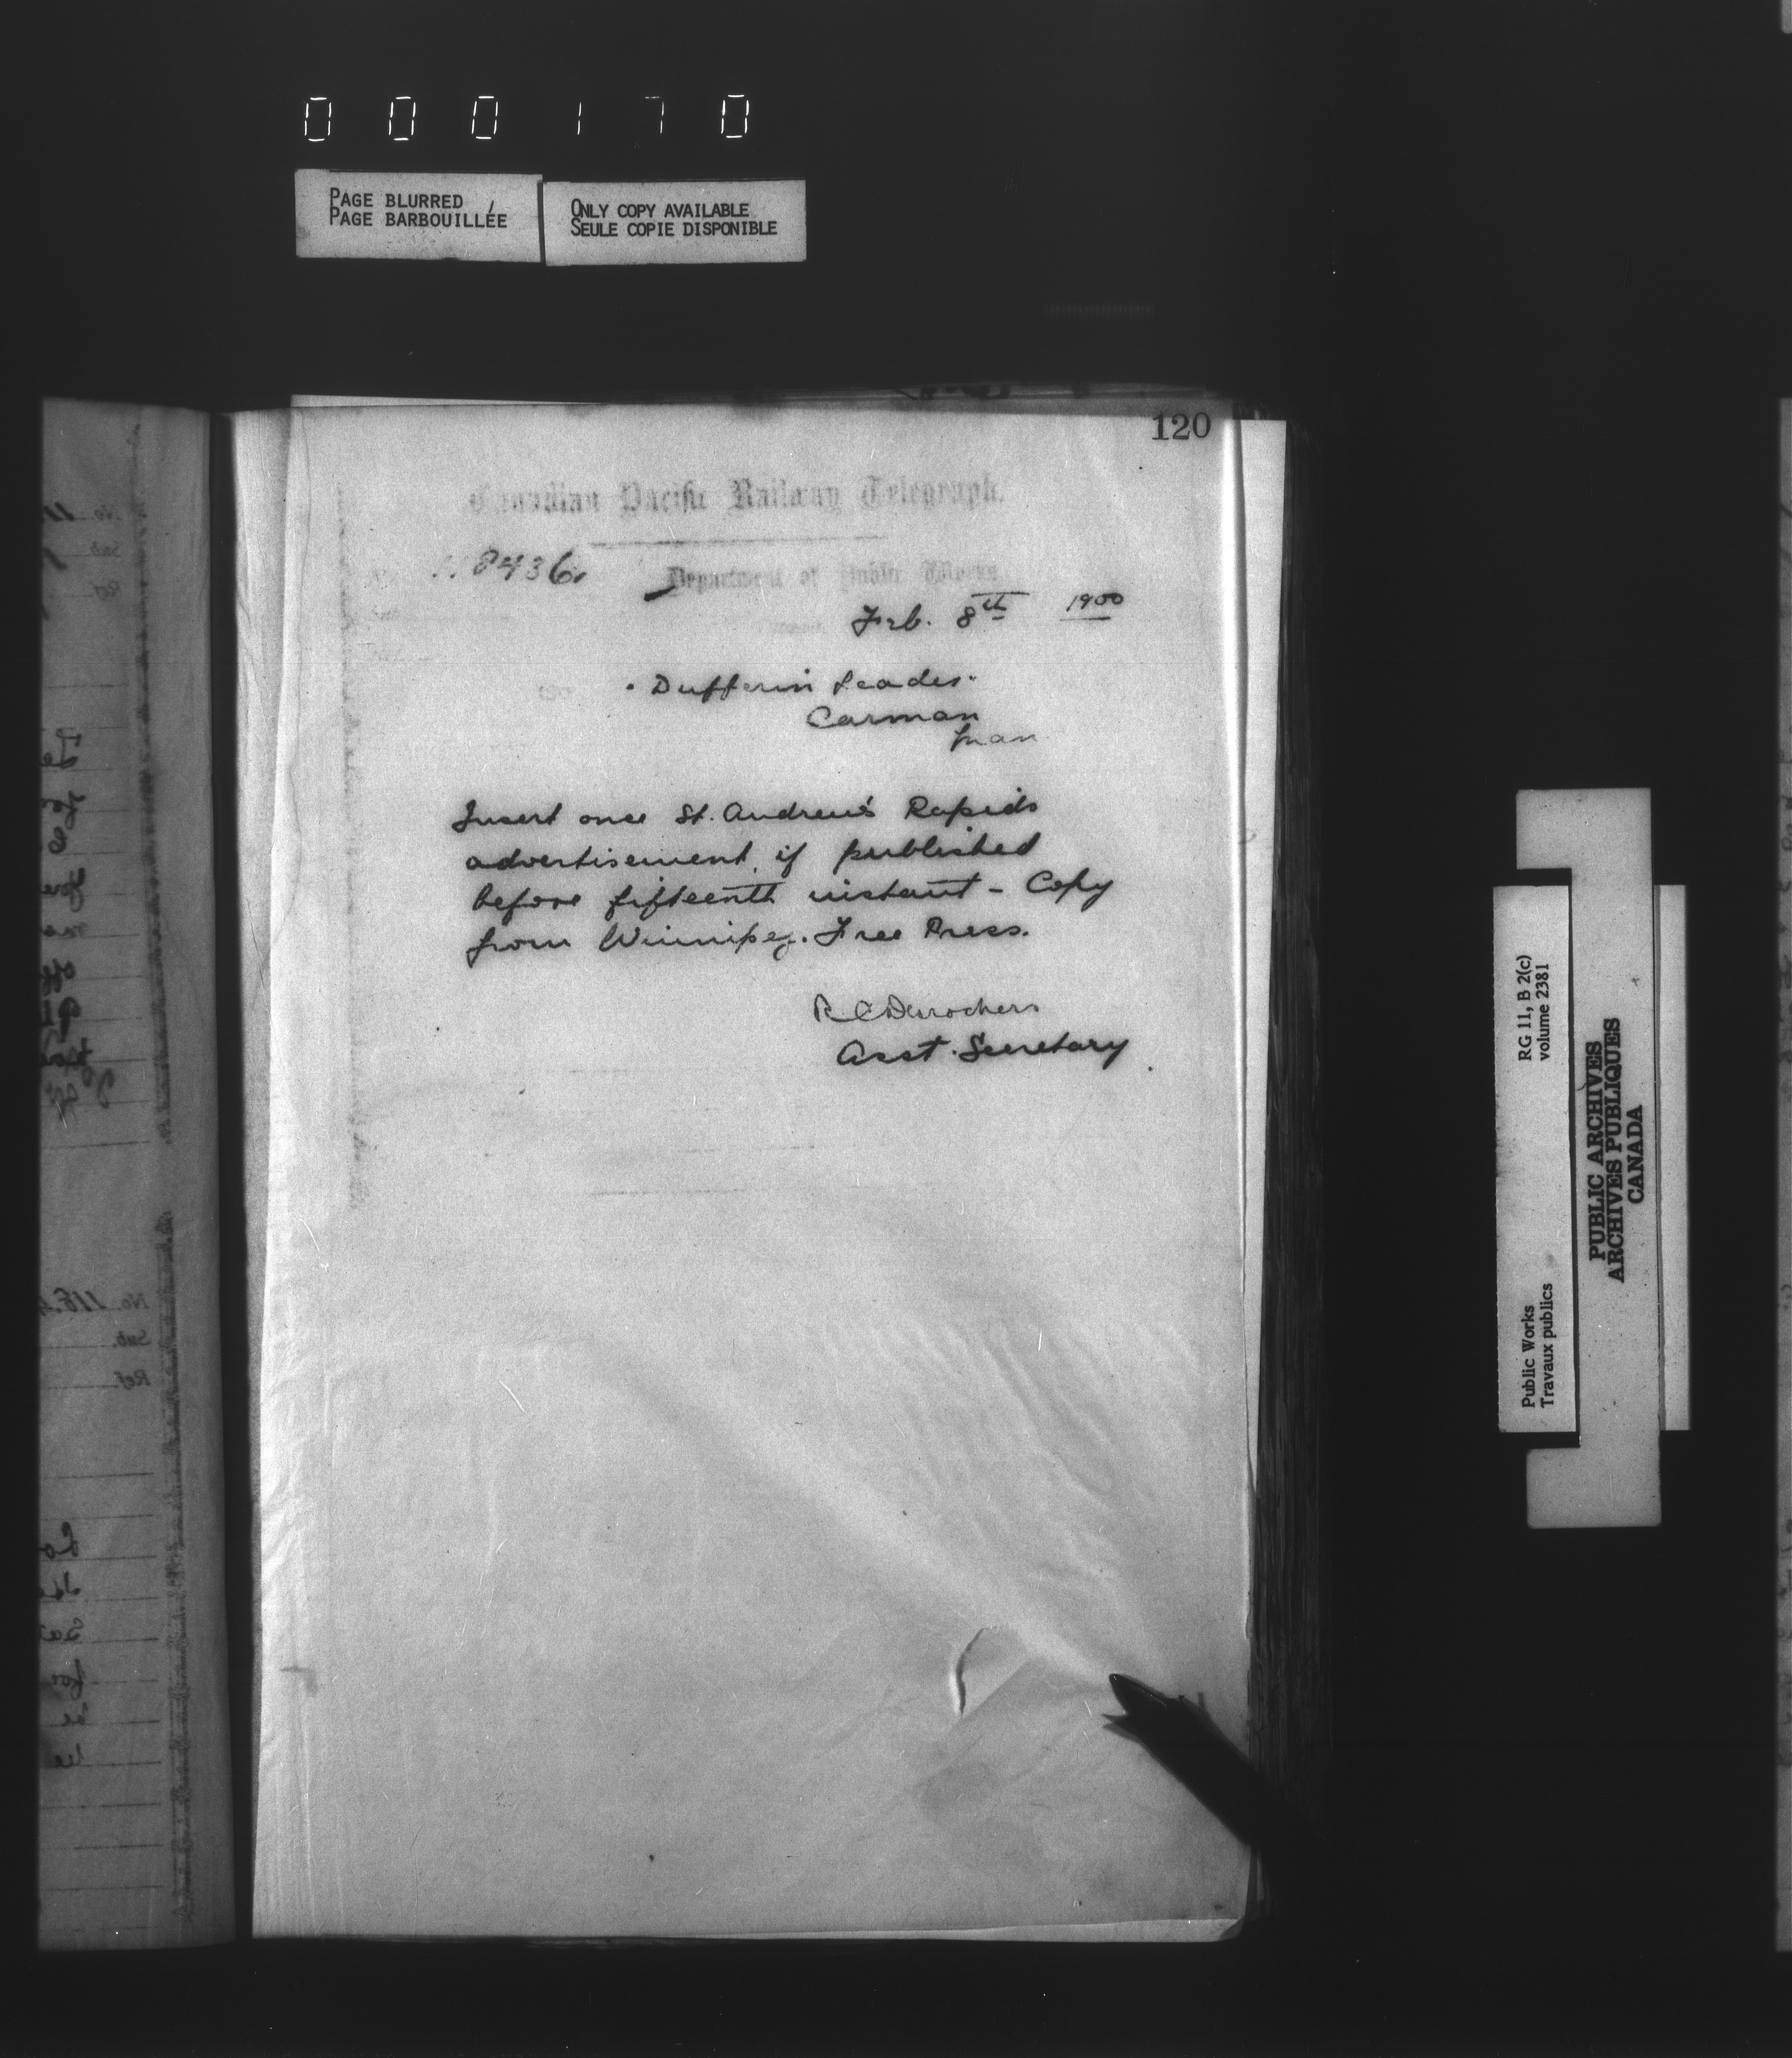 000170
PAGE BLURRED
PAGE BARBOUILLÉE
ONLY COPY AVAILABLE
SEULE COPIE DISPONIBLE
120
Canadian Pacific Railway Telegraph.
8436
Department of Public Works
Feb. 8th 1900
"Dufferin Leader"
Carman
Man
Insert once St. Andrew's Rapids
advertisement if published
before fifteenth instant - Copy
from Winnipeg. Free Press.
R C Desrochers
Asst. Secretary
No. 118
Sub.
Ref.
RG 11, B 2(c)
volume 2381
Public Works
Travaux publics
PUBLIC ARCHIVES
ARCHIVES PUBLIQUES
CANADA